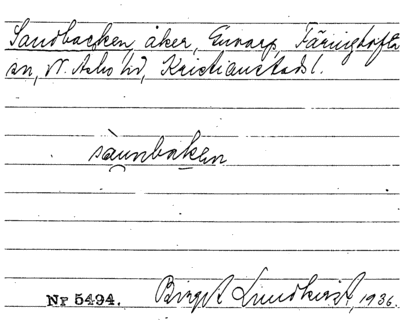 Sandbacken, åker, Enarp, Färingtofta
sn, N. Åsbo hd, Kristianstads l.
sànnbaken
Nr 5494. Birgit Lundkvist, 1936.